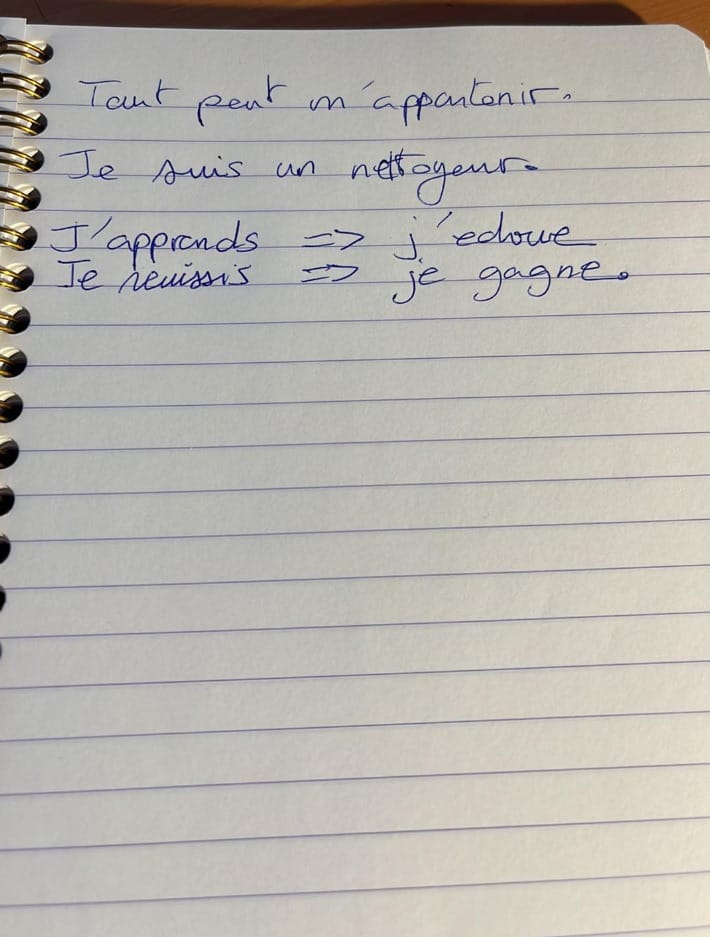 Tout peut m'appartenir.
Je suis un nettoyeur.
J'apprends => j'echoue
Je reussis => je gagne.